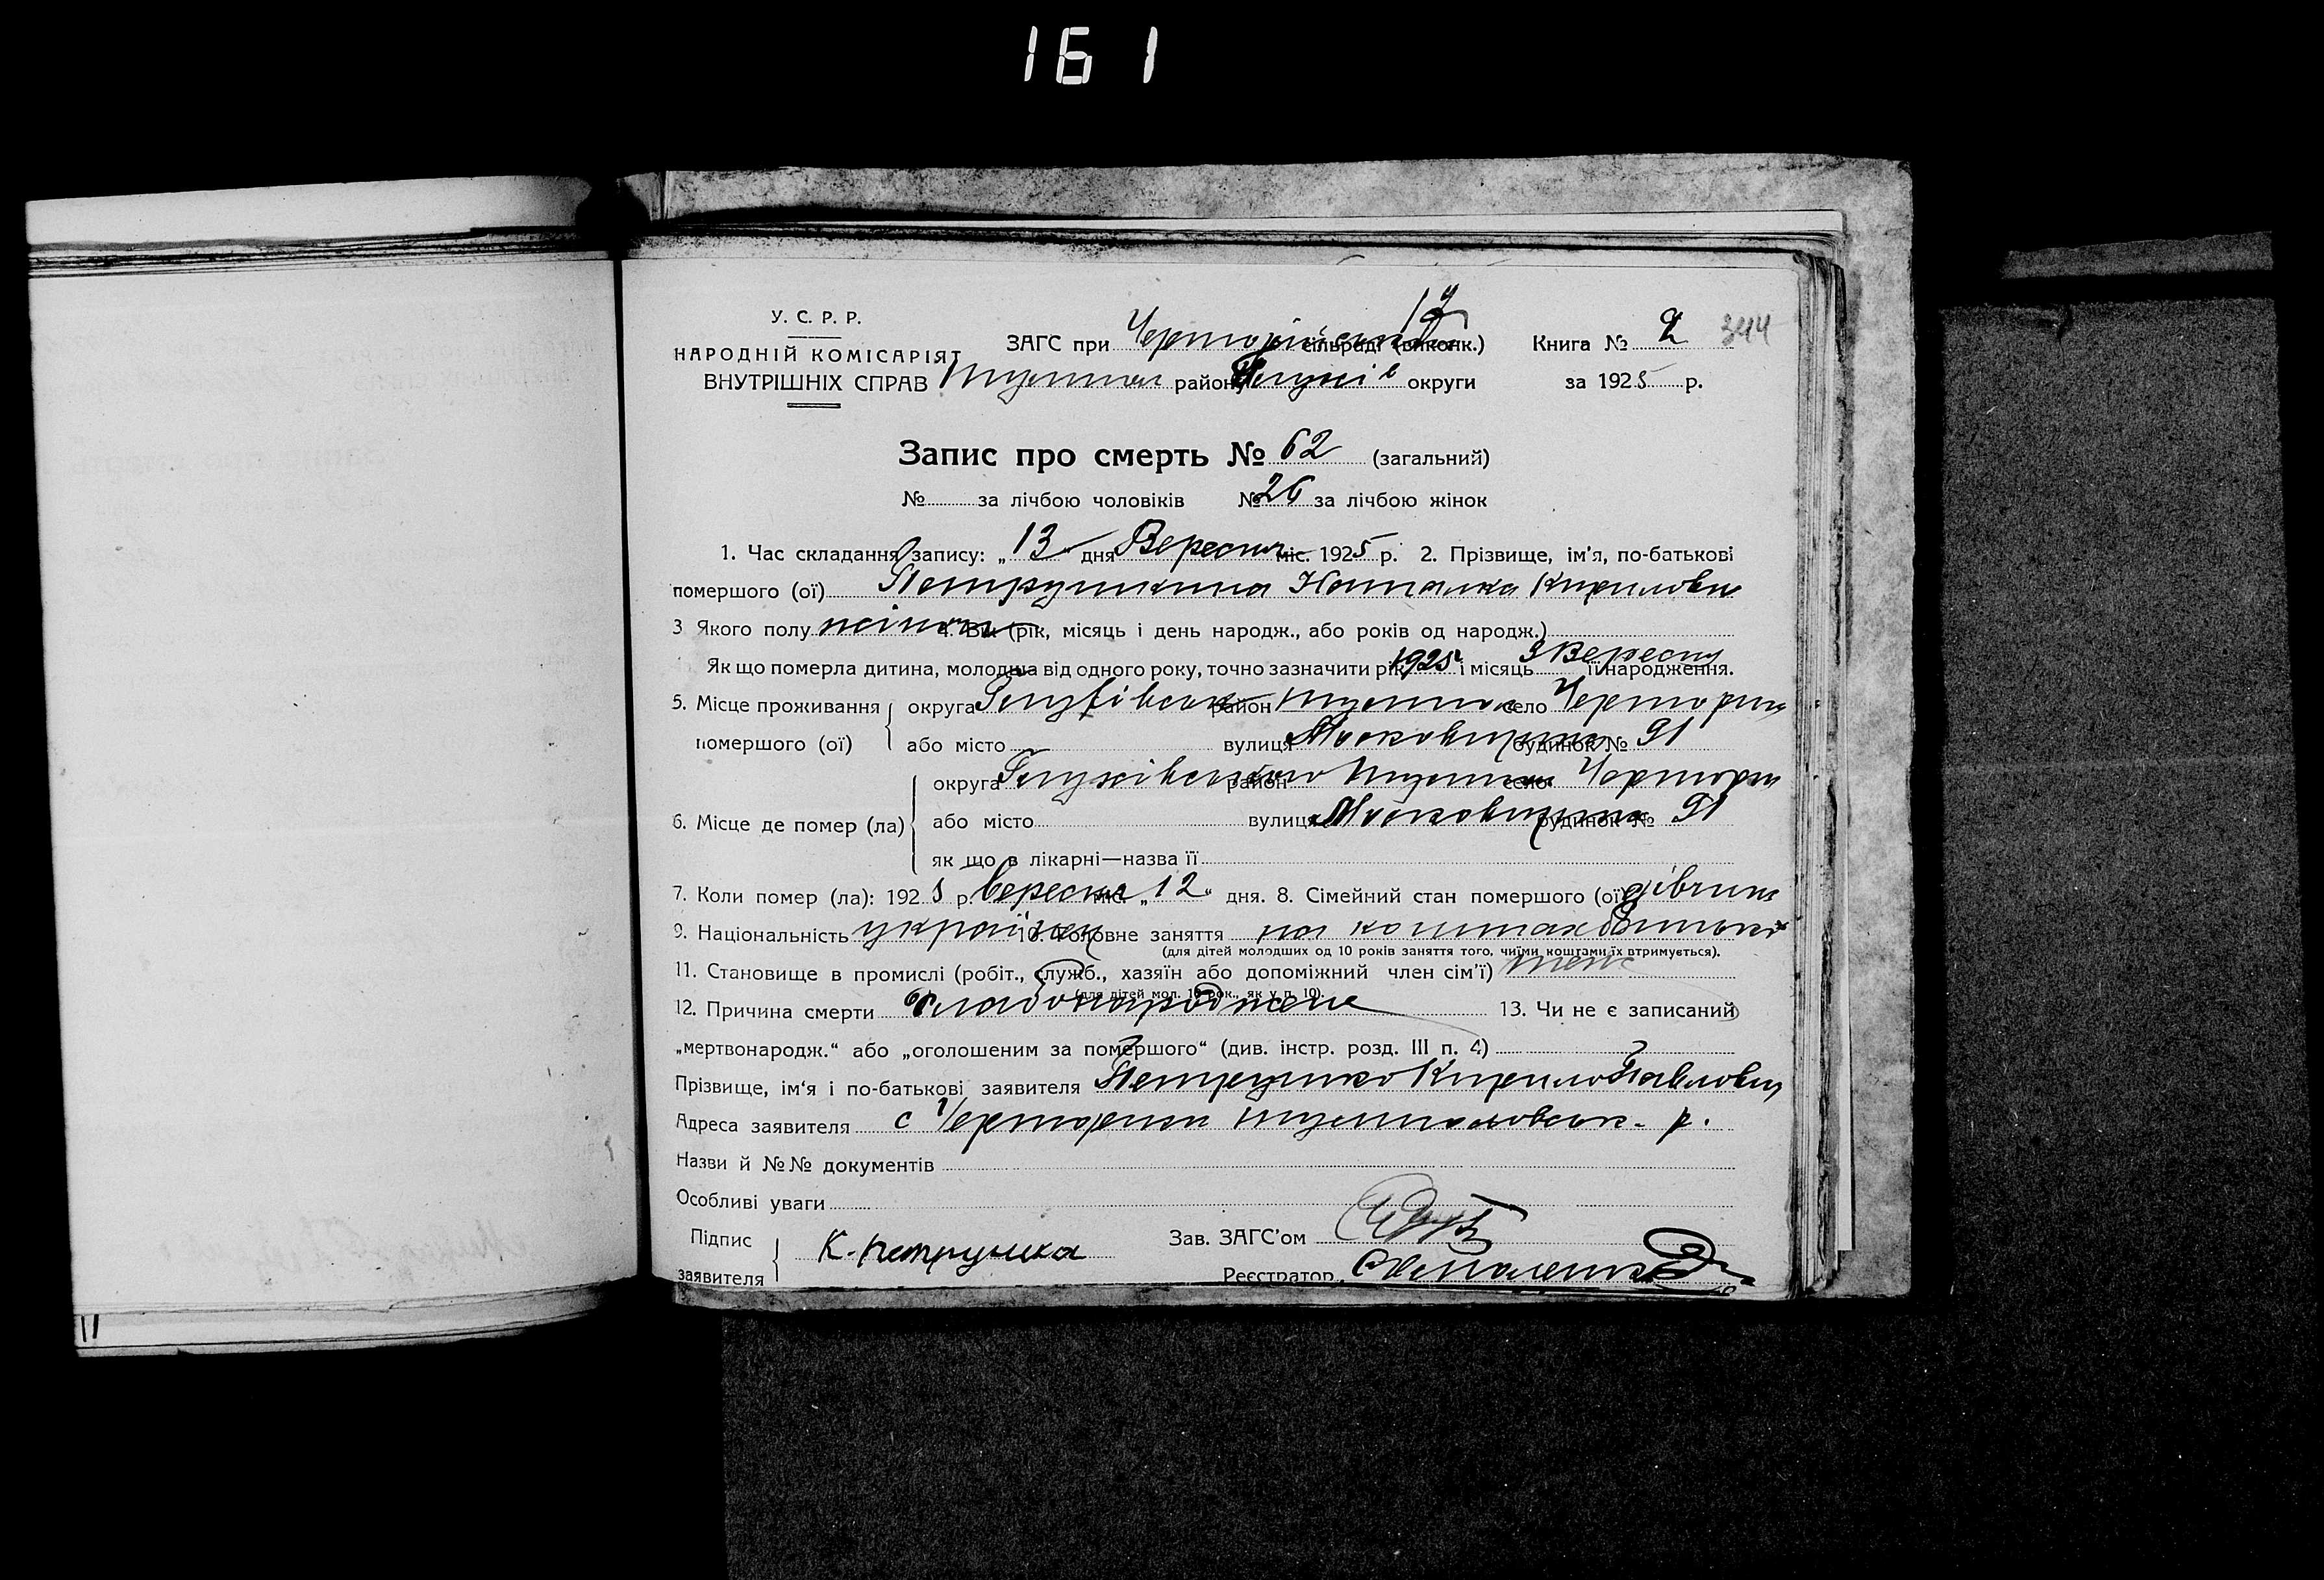 161
У. С. Р. Р.
НАРОДНІЙ КОМІСАРІЯТ
ВНУТРІШНІХ СПРАВ
ЗАГС при сільраді (виконк.) Книга № 2 344
району округи за 1925 р.
Запис про смерть № 62 (загальний)
№ за лічбою чоловіків № 26 за лічбою жінок
1. Час складання запису: „13“ дня Вересня міс. 1925 р. 2. Прізвище, ім'я, по-батькові
помершого (ої) Наталка Кириловн
3 Якого полу жіноч 4. Вік (рік, місяць і день народж., або років од народж.)
Як що померла дитина, молодша від одного року, точно зазначити рік 1925 і місяць 3 Вересня її народження.
5. Місце проживання округа район село Черториги
помершого (ої) або місто вулиця Московщина будинок № 91
округа Глухівського район село Черториг
6. Місце де помер (ла) або місто вулиця Московщина будинок № 91
як що в лікарні—назва її
7. Коли помер (ла): 1925 р. Вересня міс. „12“ дня. 8. Сімейний стан помершого (ої) дівчина
9. Національність українец 10. Головне заняття на коштах батька
(для дітей молодших од 10 років заняття того, чиїми коштами їх втримується).
11. Становище в промислі (робіт., служб., хазяїн або допоміжний член сім'ї) член
(для дітей мол. 10 рок., як у п. 10).
12. Причина смерти слабонароджене 13. Чи не є записаний
„мертвонародж.“ або „оголошеним за помершого“ (див. інстр. розд. III п. 4)
Прізвище, ім'я і по-батькові заявителя Петрушко Кирило Павлович
Адреса заявителя с Черториги р.
Назви й №№ документів
Особливі уваги
Підпис заявителя К. Петрушка Зав. ЗАГС'ом
Реєстратор